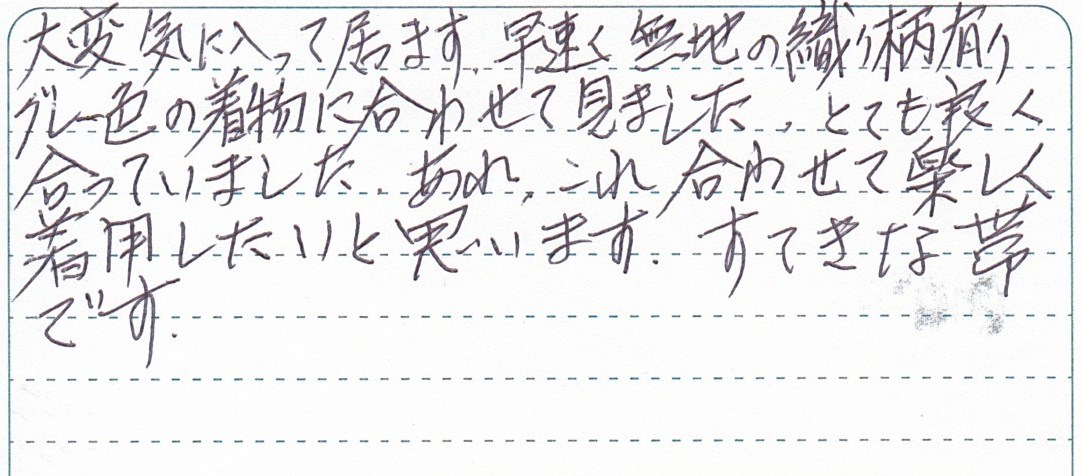 大変気に入って居ます。早速く無地の織り柄有り
グレー色の着物に合わせて見ました。とても良く
合っていました。あれ、これ合わせて楽しく
着用したいと思います。すてきな帯
です。